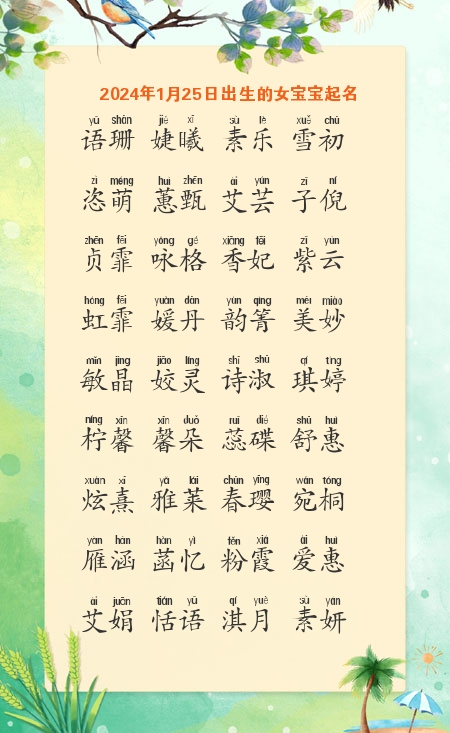 2024年1月25日出生的女宝宝起名
yǔ shān jié xī sù lè xuě chū
语珊 婕曦 素乐 雪初
zì méng huì zhēn ài yún zǐ ní
恣萌 蕙甄 艾芸 子倪
zhēn fēi yǒng gé xiāng fēi zǐ yún
贞霏 咏格 香妃 紫云
hóng fēi yuàn dān yùn qìng měi miào
虹霏 媛丹 韵箐 美妙
mǐn jīng jiāo líng shī shū qí tíng
敏晶 姣灵 诗淑 琪婷
níng xīn xīn duǒ ruǐ dié shū huì
柠馨 馨朵 蕊碟 舒惠
xuàn xī yǎ lái chūn yīng wǎn tóng
炫熹 雅莱 春璎 宛桐
yàn hán hàn yì fěn xiá ài huì
雁涵 菡忆 粉霞 爱惠
ài juān tián yǔ qí yuè sù yán
艾娟 恬语 淇月 素妍